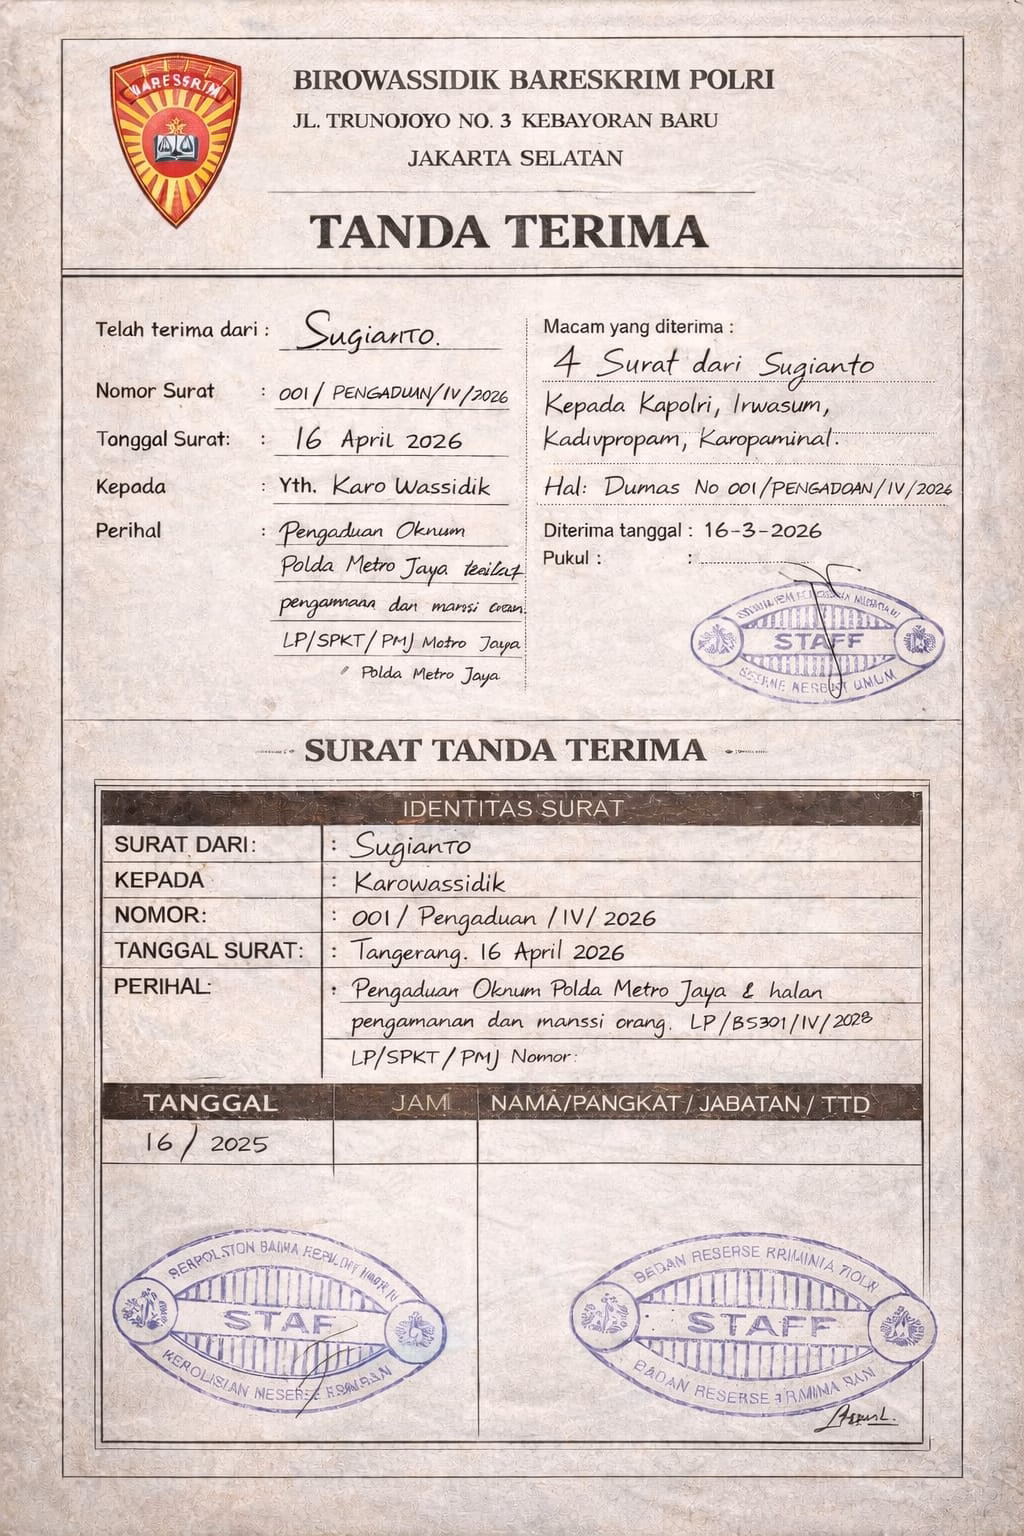 BARESSRIM
BIROWASSIDIK BARESKRIM POLRI
JL. TRUNOJOYO NO. 3 KEBAYORAN BARU
JAKARTA SELATAN
TANDA TERIMA
Telah terima dari : Sugianto.
Nomor Surat : 001 / PENGADUAN/IV/2026
Tanggal Surat: : 16 April 2026
Kepada : Yth. Karo Wassidik
Perihal : Pengaduan Oknum
Polda Metro Jaya
dan
LP/SPKT/PMJ Motro Jaya
Polda Metro Jaya
Macam yang diterima :
4 Surat dari Sugianto
Kepada Kapolri, Irwasum,
Kadivpropam, Karopaminal.
Hal: Dumas No 001/PENGADOAN/IV/2026
Diterima tanggal : 16-3-2026
Pukul : :
STAFF
UMUM
SURAT TANDA TERIMA
IDENTITAS SURAT
SURAT DARI: : Sugianto
KEPADA : Karowassidik
NOMOR: : 001 / Pengaduan / IV/ 2026
TANGGAL SURAT: : Tangerang. 16 April 2026
PERIHAL: : Pengaduan Oknum Polda Metro Jaya & halan
pengamanan dan manssi orang. LP/B5301/IV/2028
LP/SPKT/PMJ Nomor:
TANGGAL JAMI NAMA/PANGKAT / JABATAN / TTD
16 / 2025
STAF
BEDAN RESERSE
STAFF
BADAN RESERSE